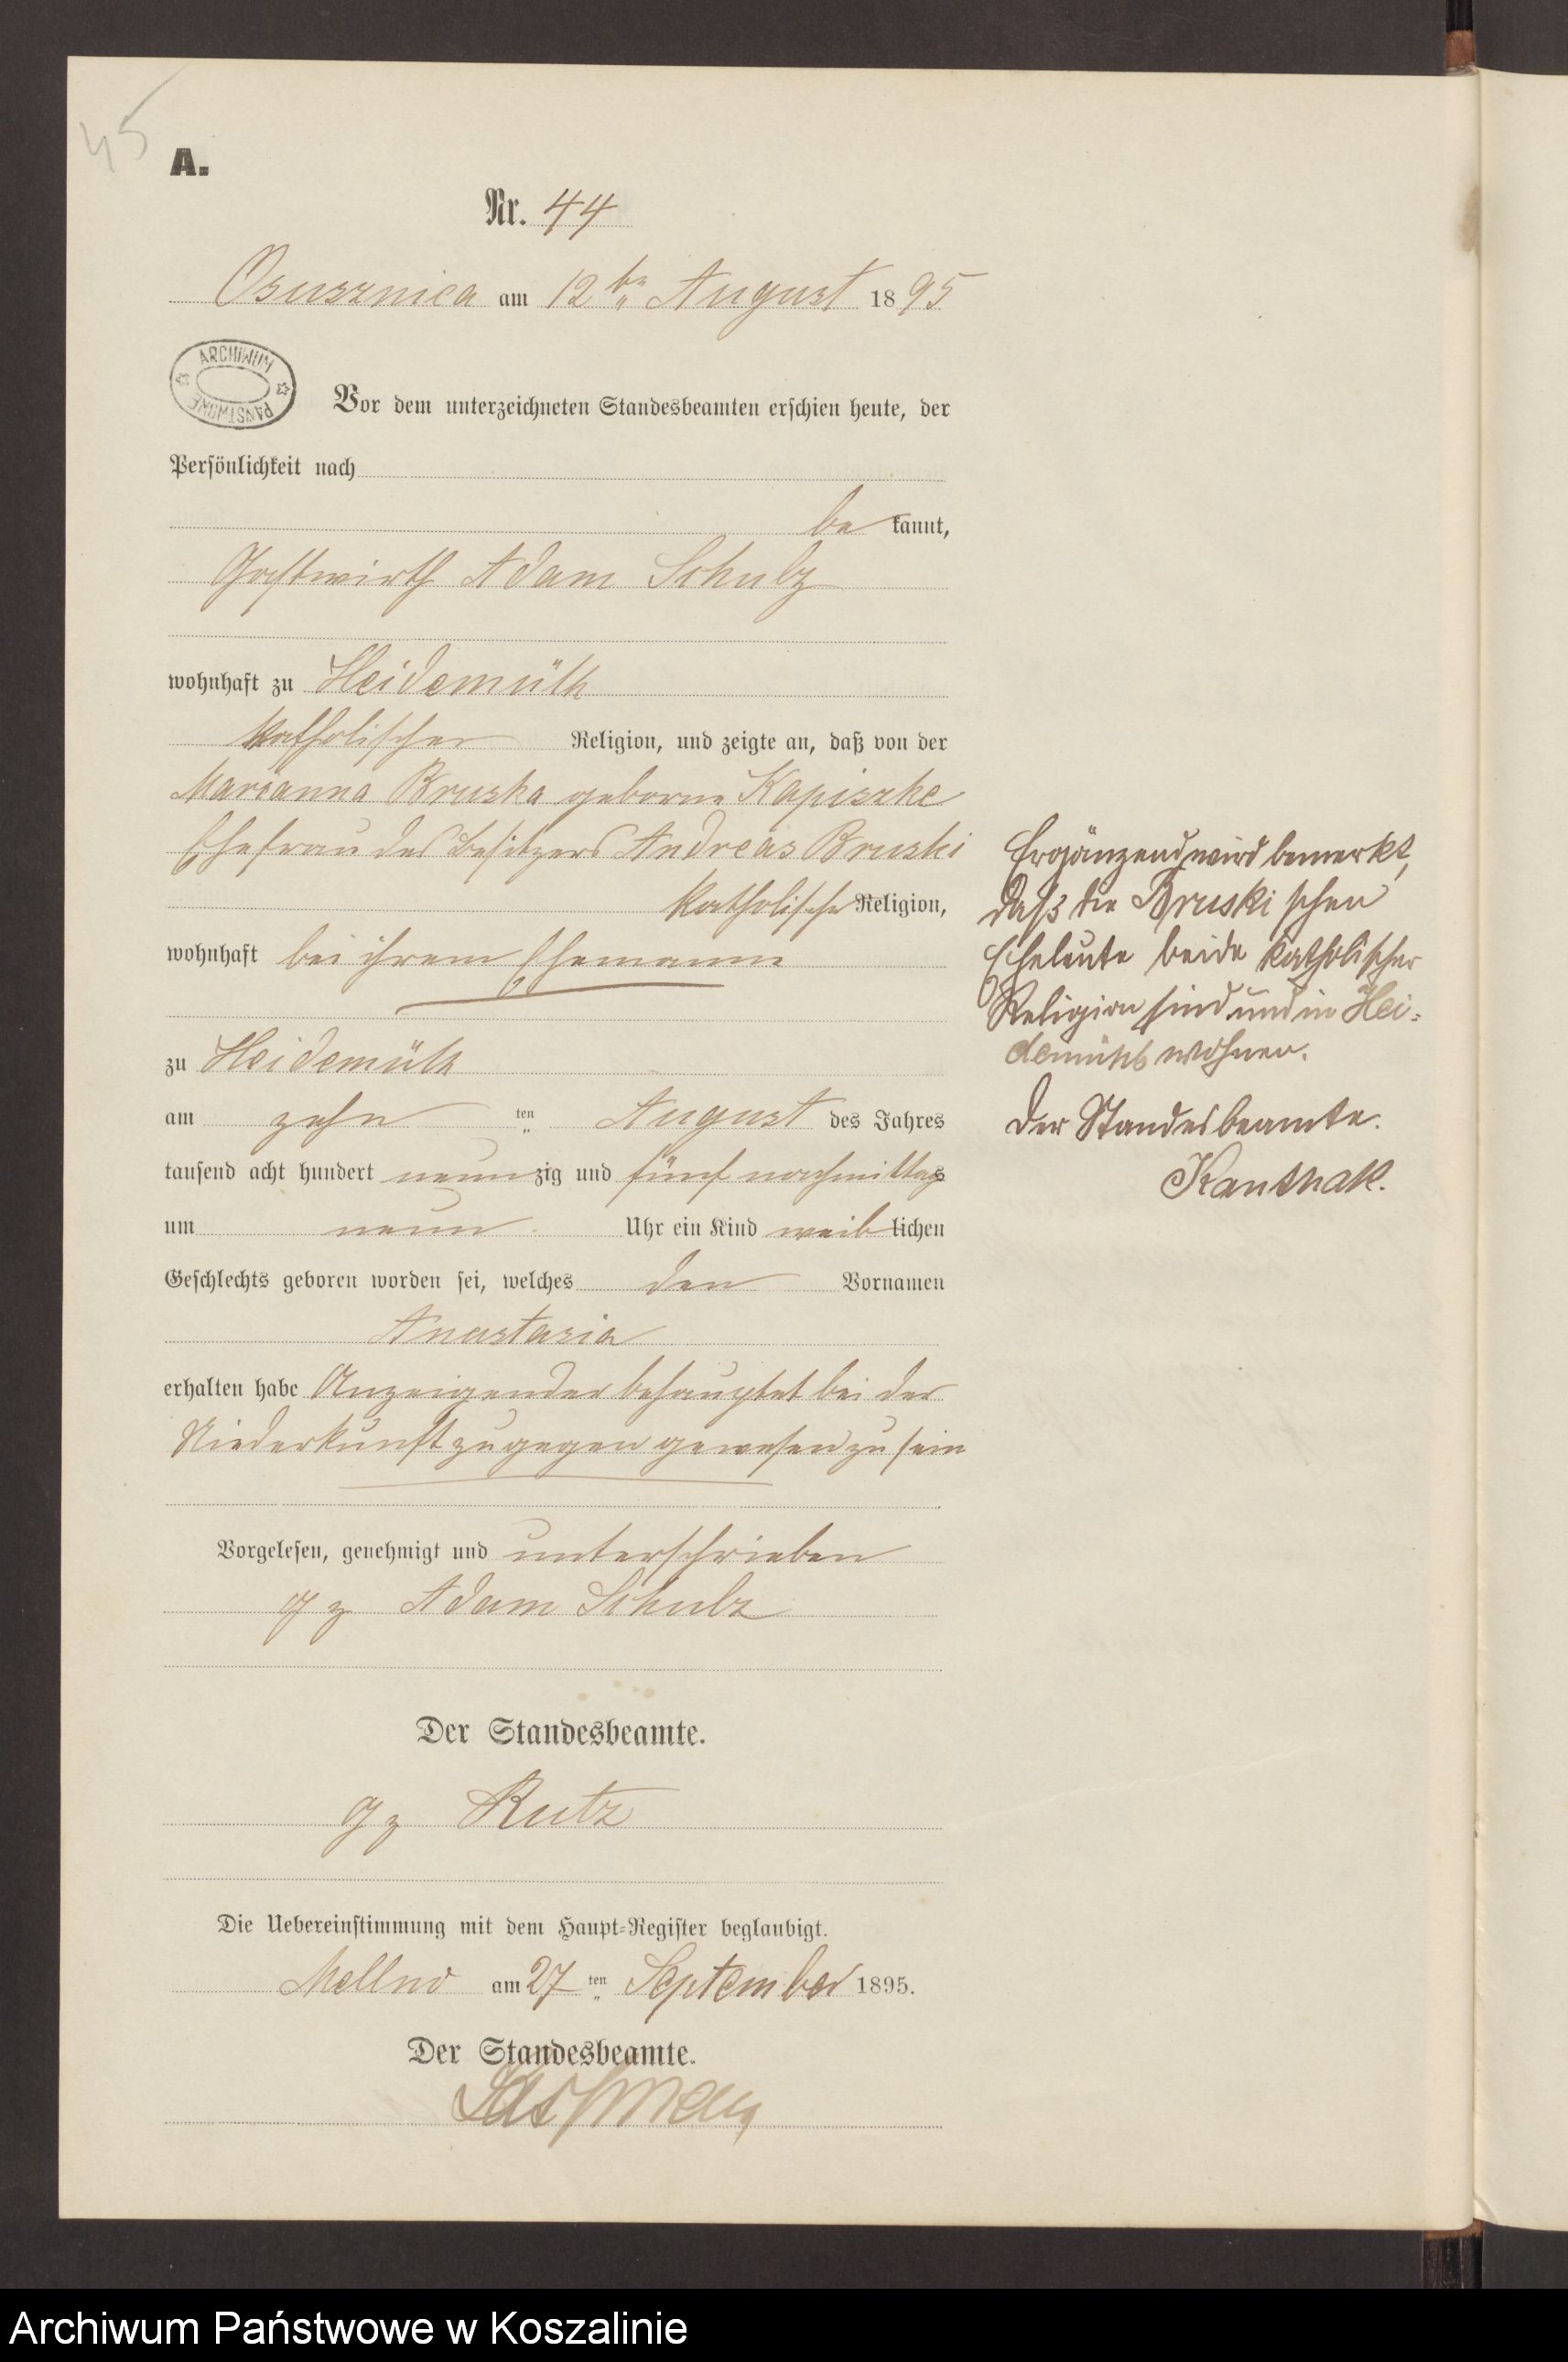 45
A.
Nr. 44
Osusznica am 12ten August 1895
ARCHIWUM PAŃSTWOWE
Vor dem unterzeichneten Standesbeamten erschien heute, der
Persönlichkeit nach
be kannt,
Gastwirth Adam Schulz
wohnhaft zu Heidemühl
katholischer Religion, und zeigte an, daß von der
Marianna Bruska geborne Kapiszke
Ehefrau des Besitzers Andreas Bruski
katholischer Religion,
wohnhaft bei ihrem Ehemanne
zu Heidemühl
am zehn ten August des Jahres
tausend acht hundert neunzig und fünf nachmittags
um neun Uhr ein Kind weiblichen
Geschlechts geboren worden sei, welches den Vornamen
Anastasia
erhalten habe Anzeigender behauptet bei der
Niederkunft zugegen gewesen zu sein
Vorgelesen, genehmigt und unterschrieben
gz Adam Schulz
Der Standesbeamte.
gz Rutz
Die Uebereinstimmung mit dem Haupt-Register beglaubigt.
Mellno am 27ten September 1895.
Der Standesbeamte.
Ergänzend wird bemerkt,
daß die Bruski schen
Eheleute beide katholischer
Religion sind und in Hei-
demühl wohnen.
Der Standesbeamte.
Archiwum Państwowe w Koszalinie